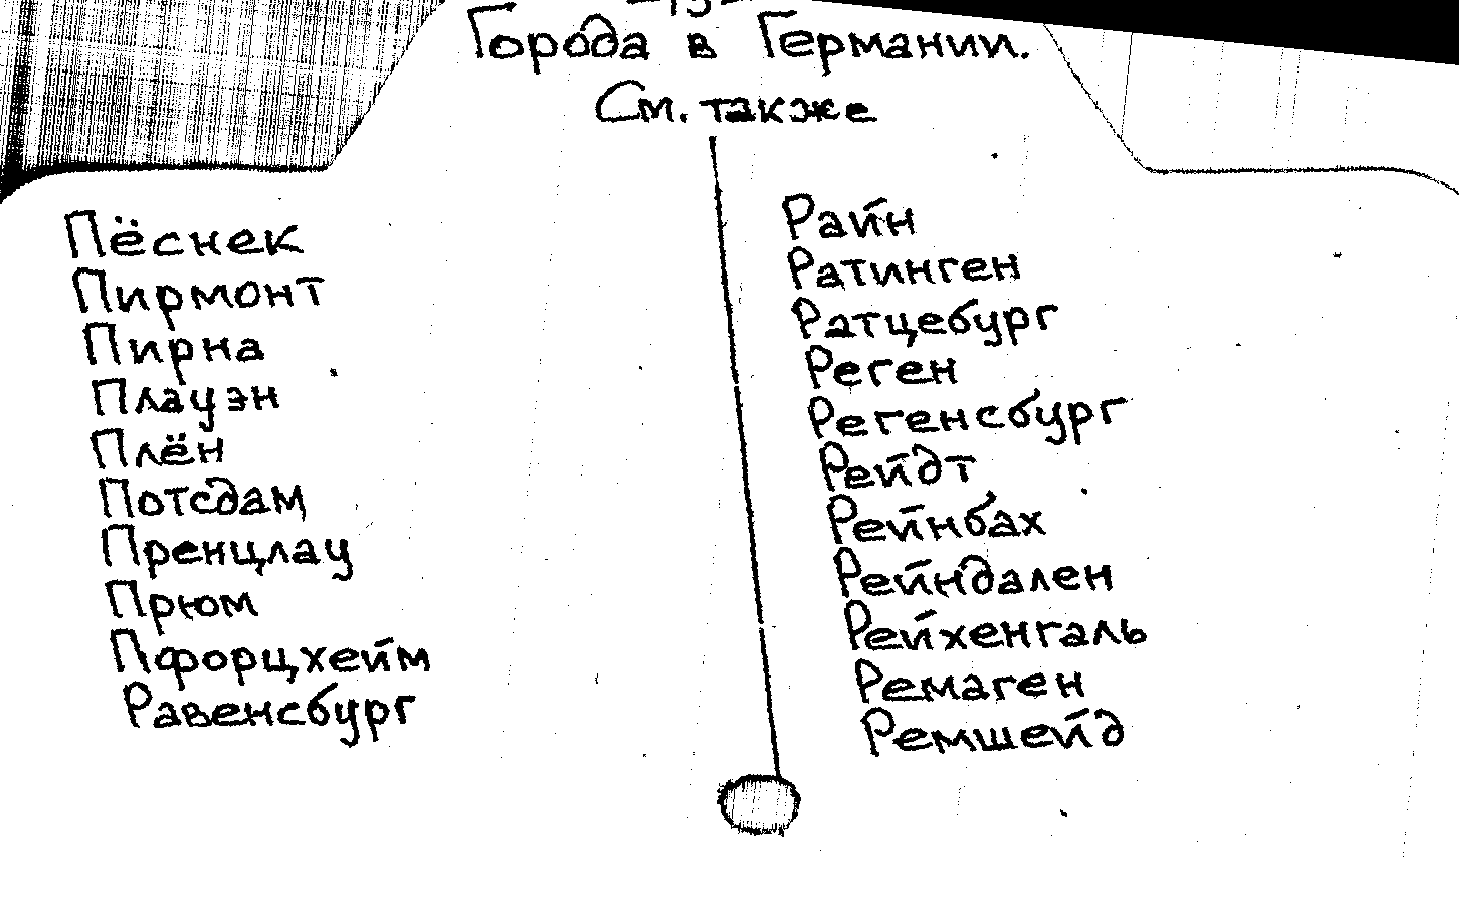 Города в Германии.
См. также
Пёснек
Пирмонт
Пирна
Плауэн
Плён
Потсдам
Пренцлау
Прюм
Пфорцхейм
Равенсбург
Райн
Ратинген
Ратцебург
Реген
Регенсбург
Рейдт
Рейнбах
Рейндален
Рейхенгаль
Ремаген
Ремшейд